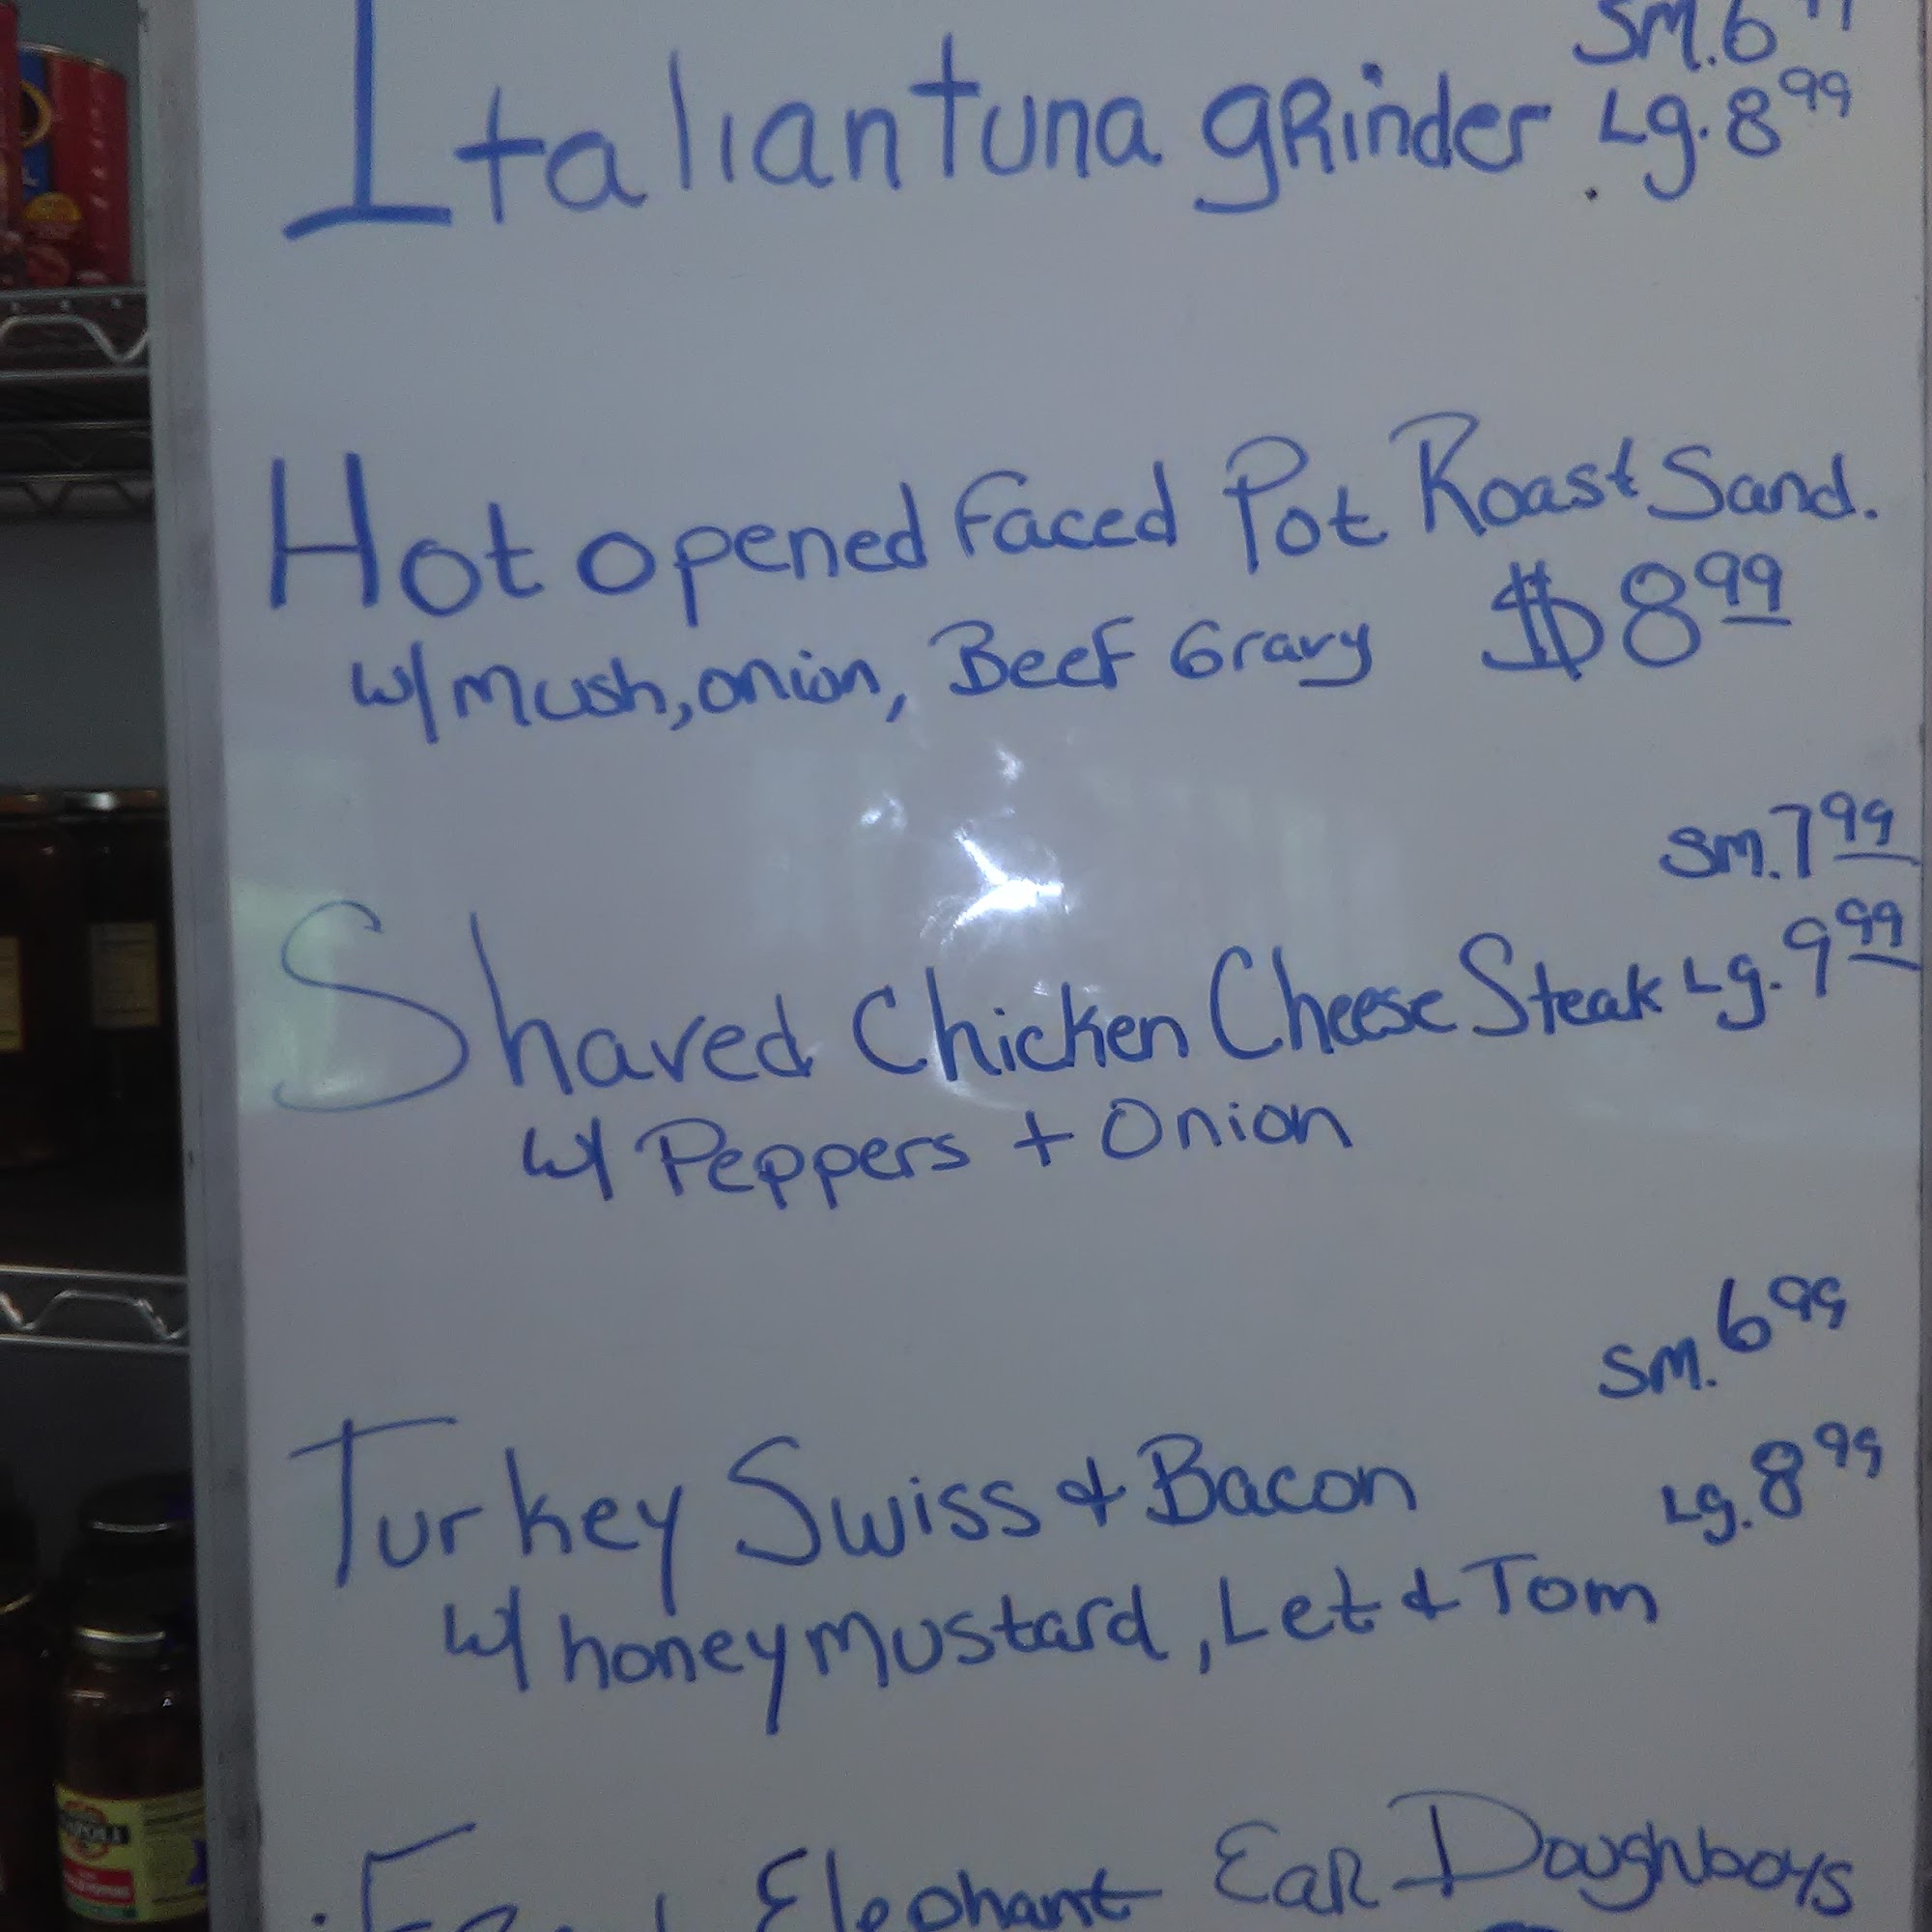 Sm. 6 99
Italian tuna gRinder Lg. 8 99
Hot opened faced Pot Roast Sand.
w/ mush, onion, Beef Gravy $8 99
Sm. 7 99
Shaved Chicken Cheese Steak Lg. 9 99
w/ Peppers + Onion
Sm. 6 99
Turkey Swiss & Bacon Lg. 8 99
w/ honey mustard, Let & Tom
Elephant Ear Doughboys